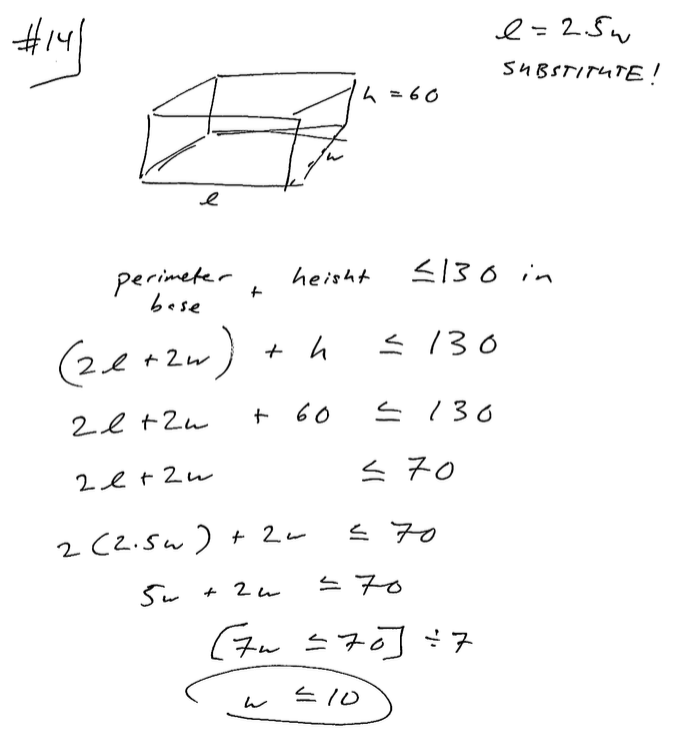 #14
l = 2.5w
SUBSTITUTE!
h = 60
w
l
perimeter + height ≤ 130 in
base
(2l + 2w) + h ≤ 130
2l + 2w + 60 ≤ 130
2l + 2w ≤ 70
2(2.5w) + 2w ≤ 70
5w + 2w ≤ 70
[7w ≤ 70] ÷ 7
w ≤ 10